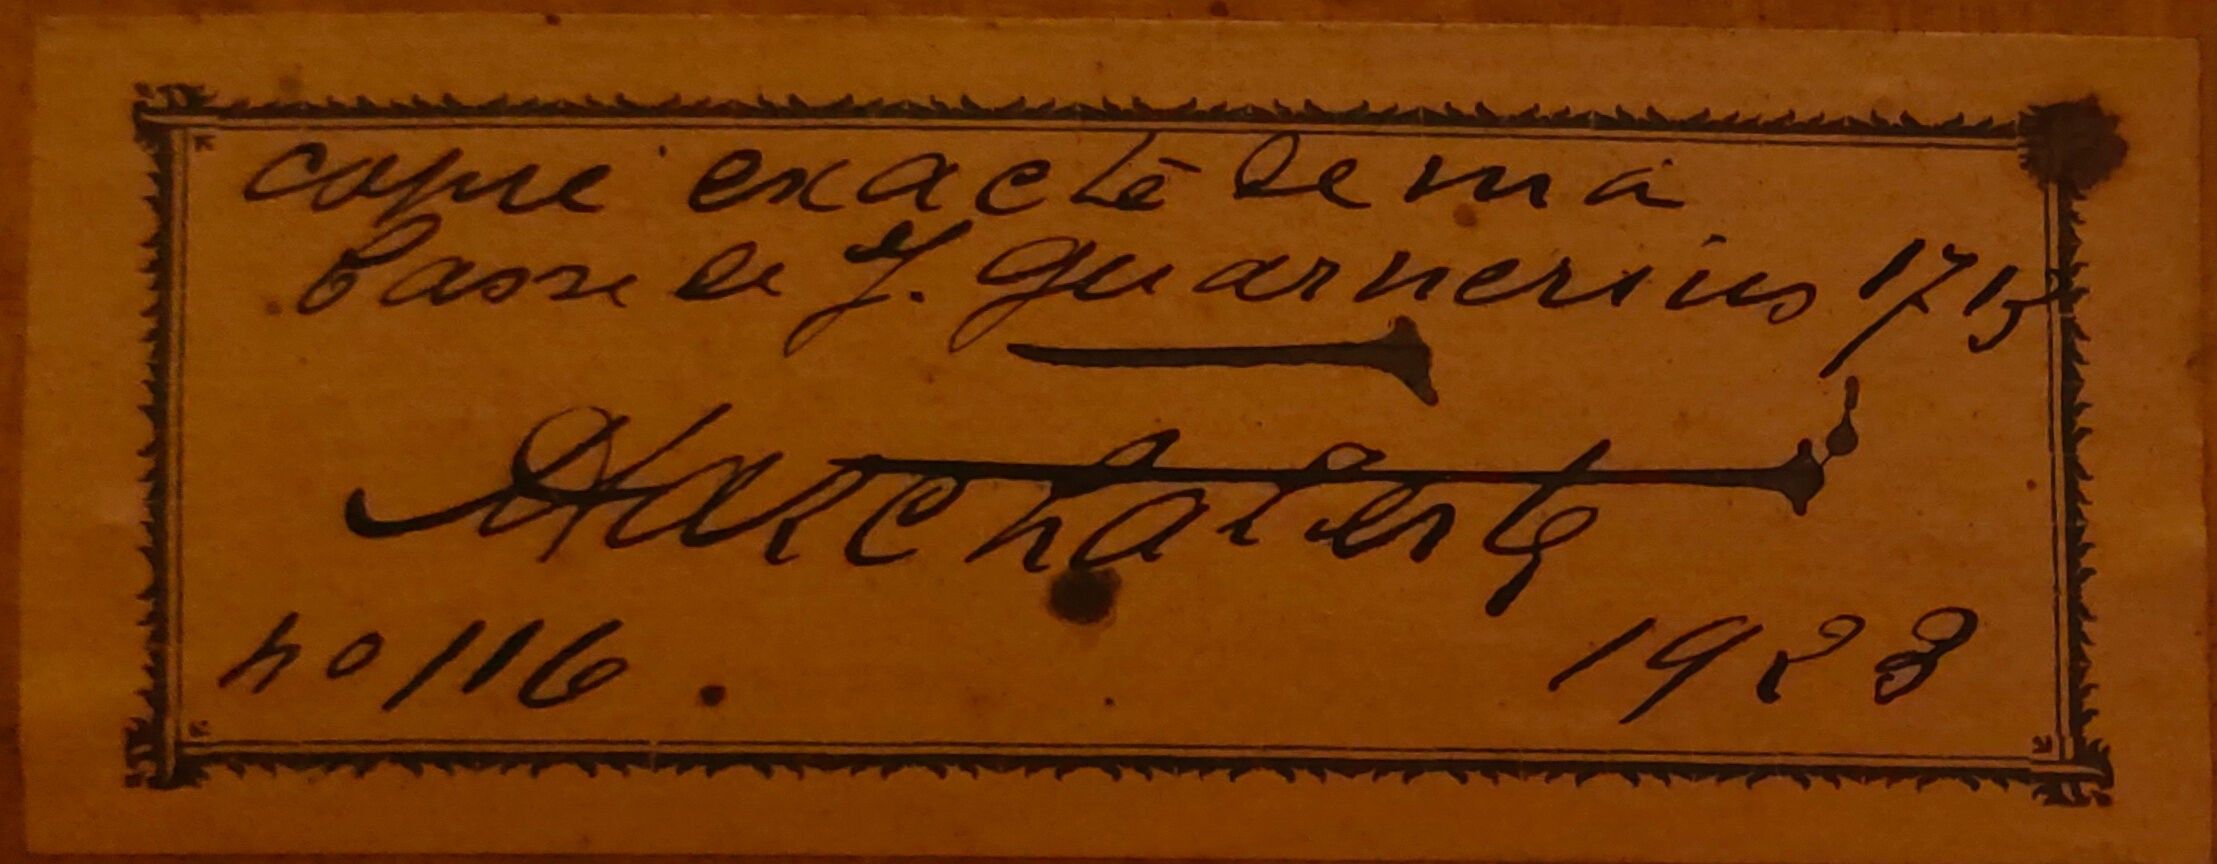 copie exacte de ma
Basse de J. Guarnerius 1715
no 116. 1923